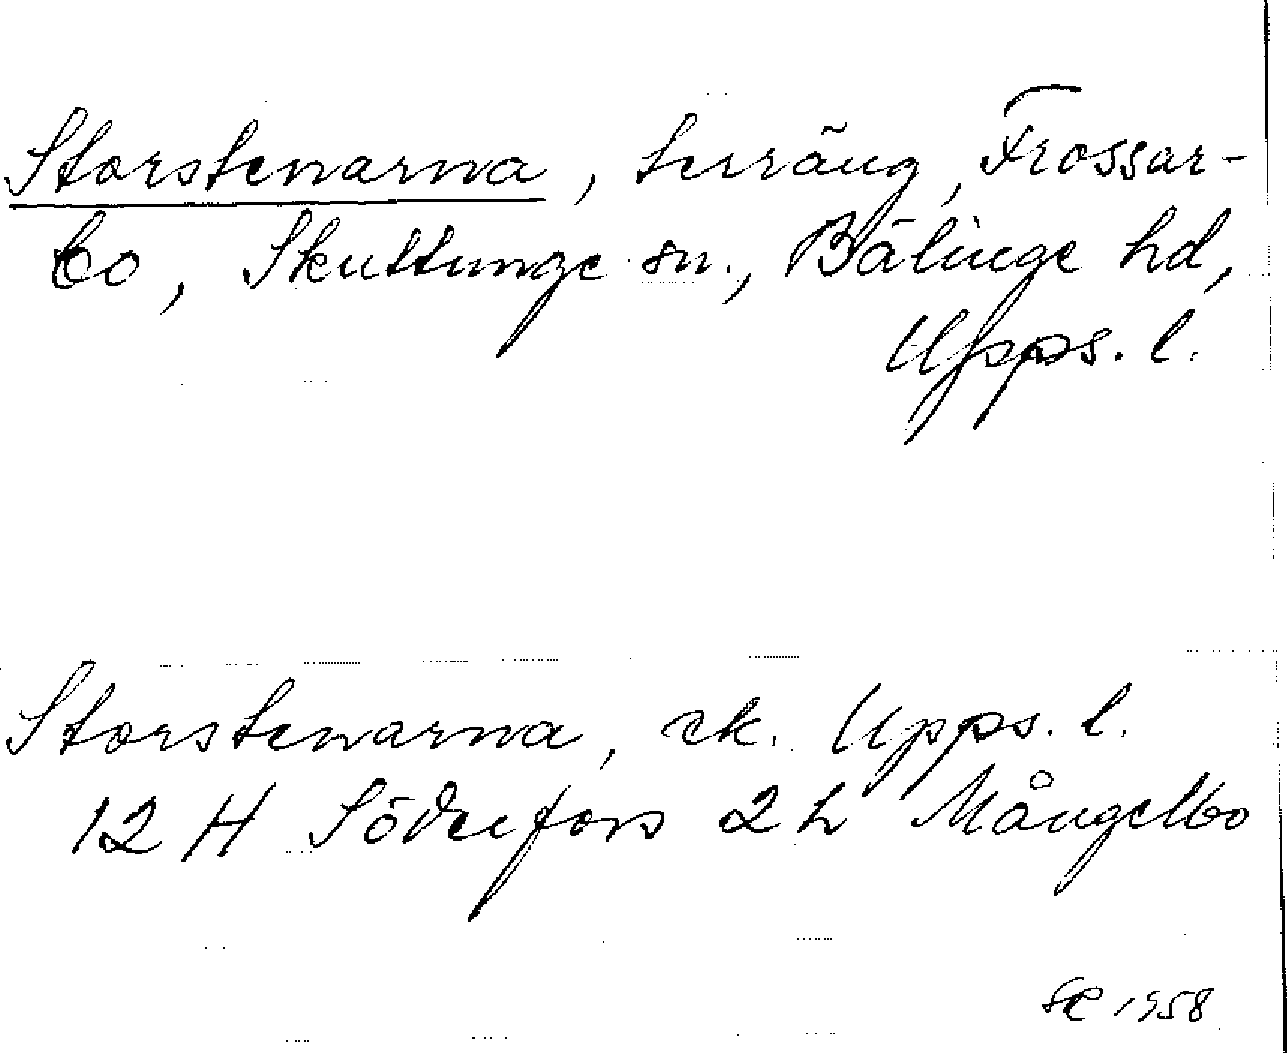 Storstenarna, terräng, Frossar-
bo, Skuttunge sn., Bälinge hd,
Upps. l.
Storstenarna, ek. Upps. l.
12 H Söderfors 2 h Mångelbo
1958